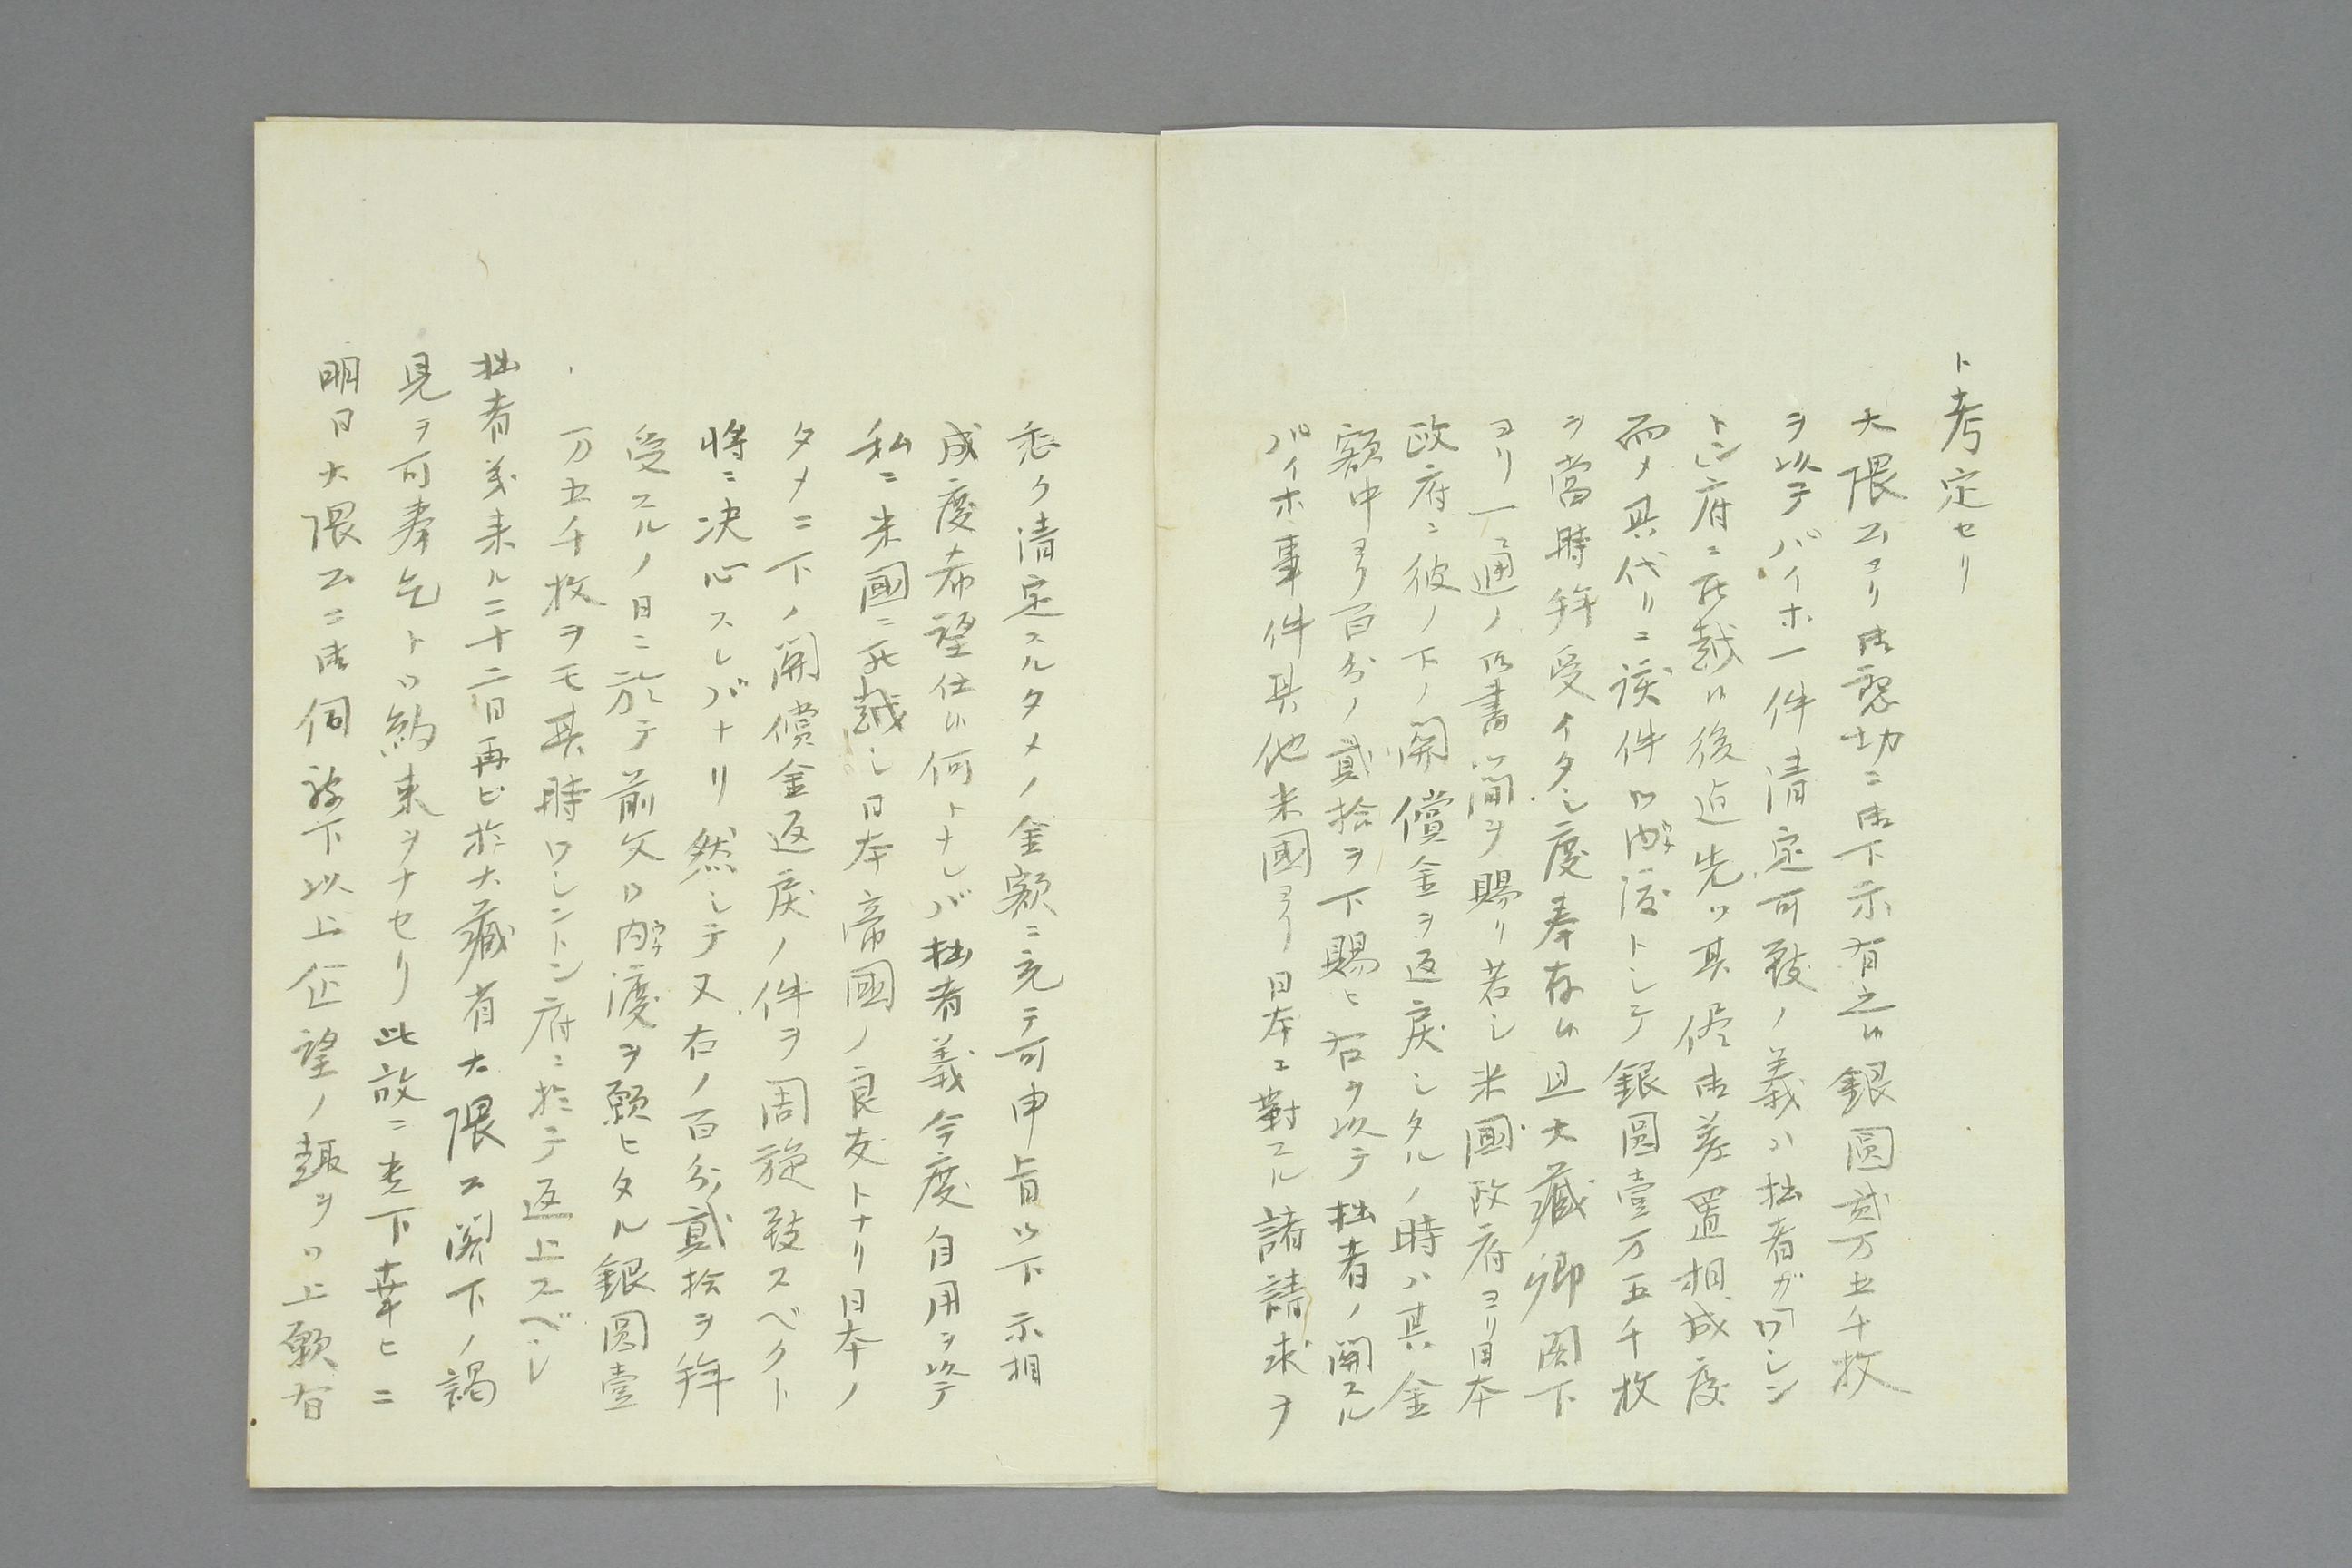 ト考定セリ
大隈公ヨリ御懇切ニ御下示有之候銀圓貳万五千枚
ヲ以テバイホ一件清定可致ノ義ハ拙者ガ「ワシン
トン」府ニ罷越候後迠先ツ其侭御差置相成度
而メ其代リニ該件ノ内渡トシテ銀圓壹万五千枚
ヲ當時拜受イタシ度奉存候且大藏卿閣下
ヨリ一通ノ御書簡ヲ賜リ若シ米國政府ヨリ日本
政府ニ彼ノ下ノ関償金ヲ返戻シタルノ時ハ其金
額中ヨリ百分ノ貳拾ヲ下賜ヒ右ヲ以テ拙者ノ関スル
バイホ事件其他米國ヨリ日本エ對スル諸請求ヲ
悉ク清定スルタメノ金額ニ充テ可申旨御下示相
成度希望仕候何トナレバ拙者義今度自用ヲ以テ
私ニ米國ニ罷越シ日本帝國ノ良友トナリ日本ノ
タメニ下ノ関償金返戻ノ件ヲ周旋致スベクト
将ニ决心スレバナリ然シテ又右ノ百分ノ貳拾ヲ拜
受スルノ日ニ於テ前文ノ内渡ヲ願ヒタル銀圓壹
万五千枚ヲモ其時ワシントン府ニ於テ返上スベシ
拙者義来ル二十二日再ビ於大藏省大隈公閣下ノ謁
見ヲ可奉乞トノ約束ヲナセリ此故ニ貴下幸ヒニ
明日大隈公ニ御伺被下以上企望ノ趣ヲ御上願有